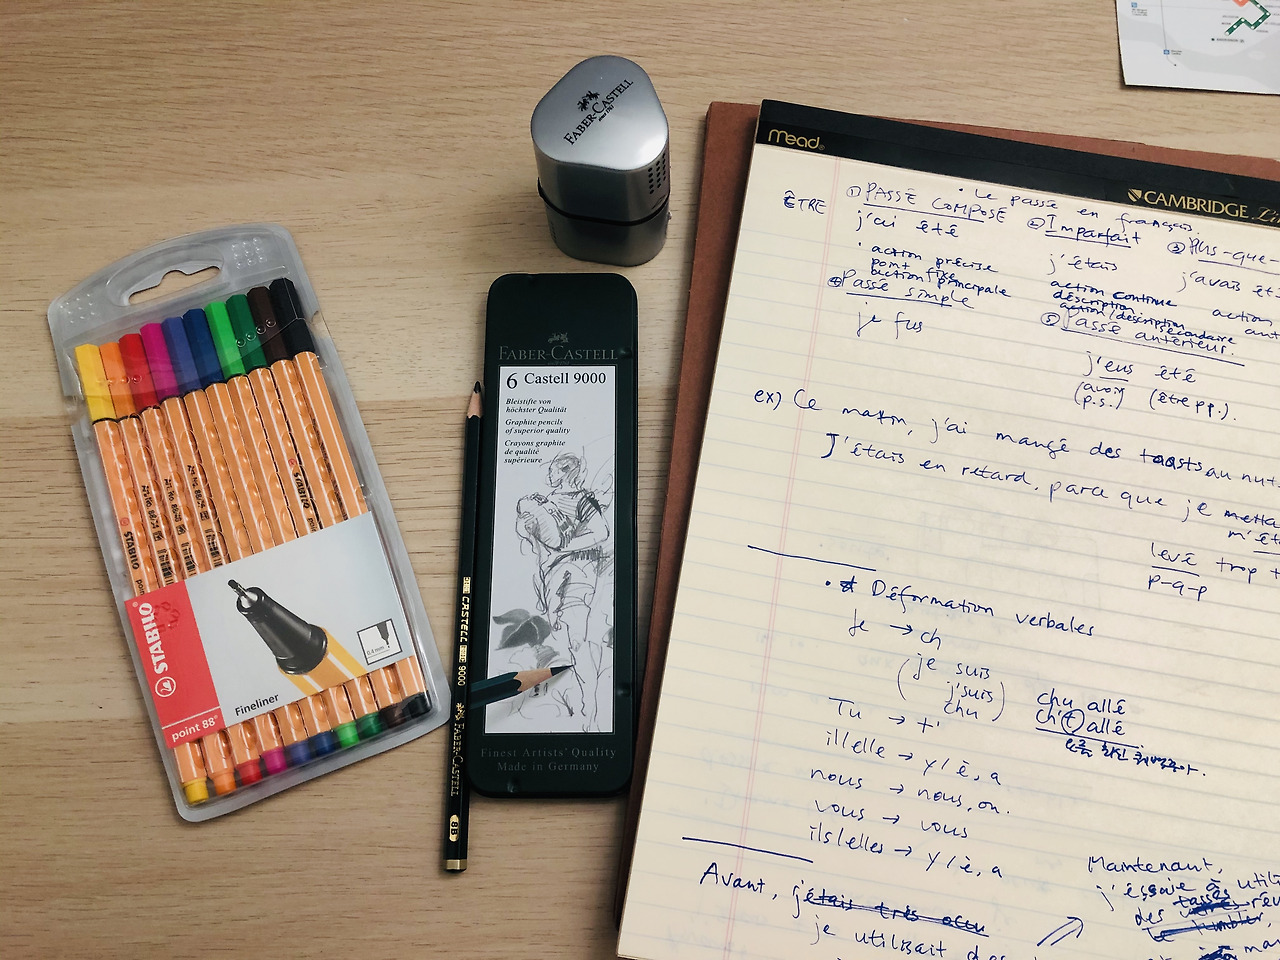 FABER-CASTELL
since 1761
Mead
CAMBRIDGE
• Le passé en français.
ÊTRE
① PASSÉ COMPOSÉ
② Imparfait
③ Plus-que-
j'ai été
j'étais
j'avais ét
• action précise
point
action fixe
action principale
action continue
déscription
action/déscription secondaire
action
ant
④ Passé simple
je fus
⑤ Passé antérieur.
j'eus été
(avoir p.s.) (être p.p.).
ex) Ce matin, j'ai mangé des toasts au nut
J'étais en retard, parce que je
m'ét
levé trop t
p-q-p
• Déformation verbales
Je → ch
(je suis
j'suis
chu)
chu allé
ch(t) allé
Tu → t'
il/elle → y/è, a
nous → nous, on.
vous → vous
ils/elles → y/è, a
Avant, j'étais très
je utilisait des
Maintenant,
j'éssaie à utili
tasses
des
le tumbler,
FABER-CASTELL
6 Castell 9000
Bleistifte von
höchster Qualität
Graphite pencils
of superior quality
Crayons graphite
de qualité
supérieure
Finest Artists' Quality
Made in Germany
CASTELL 9000
FABER-CASTELL
8B
STABILO
STABILO
STABILO
point 88
Fineliner
0,4 mm